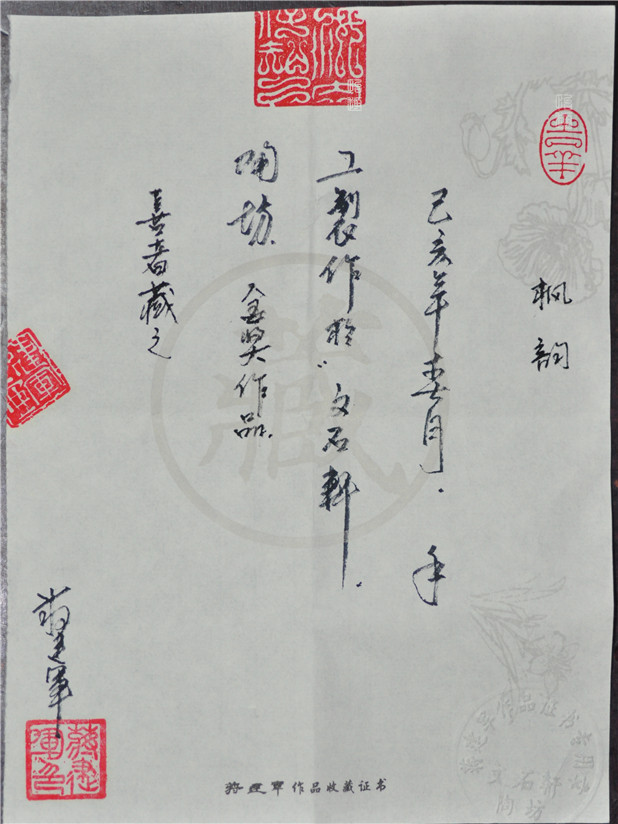 枫韵
己亥年春月.手
工製作於"文石軒
陶坊.金奖作品.
喜者藏之
蒋建军
藏
蒋建军作品收藏证书